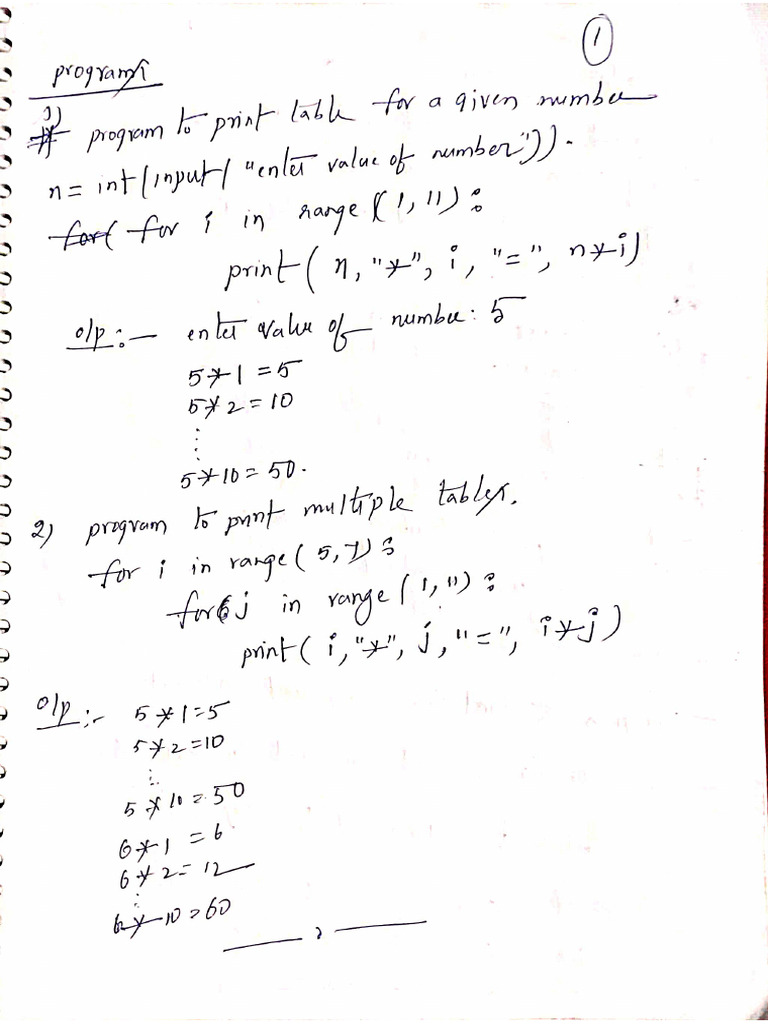 1
programs
1) program to print table for a given number
n = int(input("enter value of number")).
for i in range(1,11):
print(n,"*",i,"=",n*i)
o/p:- enter value of number: 5
5*1=5
5*2=10
:
5*10=50.
2) program to print multiple tables.
for i in range(5,7):
for j in range(1,11):
print(i,"*",j,"=",i*j)
o/p:- 5*1=5
5*2=10
:
5*10=50
6*1=6
6*2=12
:
6*10=60